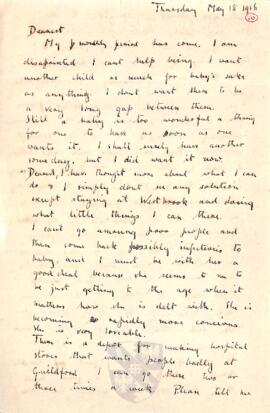 Thursday May 18 1916
10
Dearest
My monthly period has come. I am
disapointed I cant help being. I want
another child as much for baby's sake
as anything. I dont want them to be
a very long gap between them.
Still a baby is too wonderful a thing
for one to have as soon as one
wants it. I shall surely have another
some day. but I did want it now.
Dearest, I have thought more about what I can
do & I simply dont see any solution
except staying at Westbrook and doing
what little things I can there.
I cant go among poor people and
then come back possibly infectious to
baby, and I must be with her a
good deal because she seems to me to
be just getting to the age when it
matters how she is dealt with. She is
becoming so rapidly more concious.
She is very loveable.
There is a depot for making hospital
stores that wants people badly at
Guildford I can go there two or
three times a week Please tell me